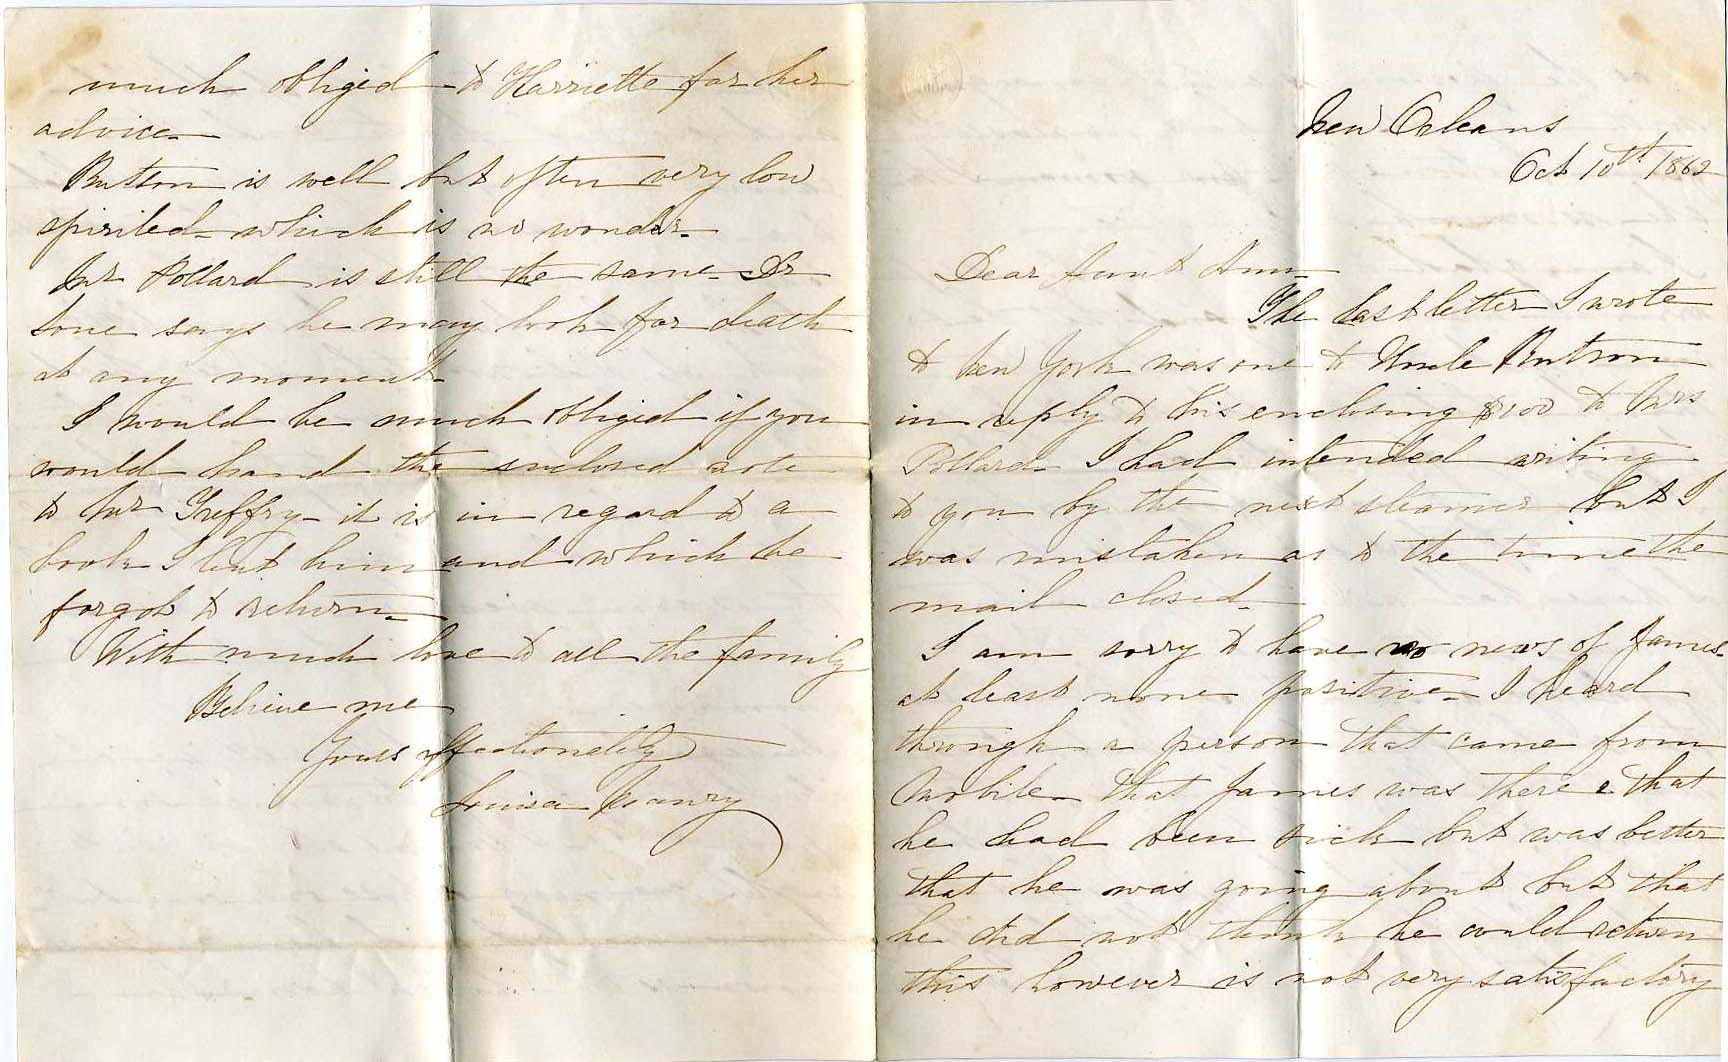 New Orleans
Oct 10th 1862
Dear Aunt Ann
The last letter I wrote
to New York was one to Uncle Rutson
in reply to his enclosing $100 to Mrs
Pollard I had intended writing
to you by the next steamer but I
was mistaken as to the time the
mail closed
I am sorry to have no news of James
at least none positive I heard
through a person that came from
Mobile that James was there & that
he had been sick but was better
that he was going about but that
he did not think he could return
this however is not very satisfactory
much obliged to Harriette for her
advice
Rutson is well but often very low
spirited which is no wonder
Mr Pollard is still the same Dr
Tone says he may look for death
at any moment
I would be much obliged if you
would hand the enclosed note
to Mr Treffry it is in regard to a
book I lent him and which he
forgot to return
With much love to all the family
Believe me
Yours affectionately
Louisa Maury